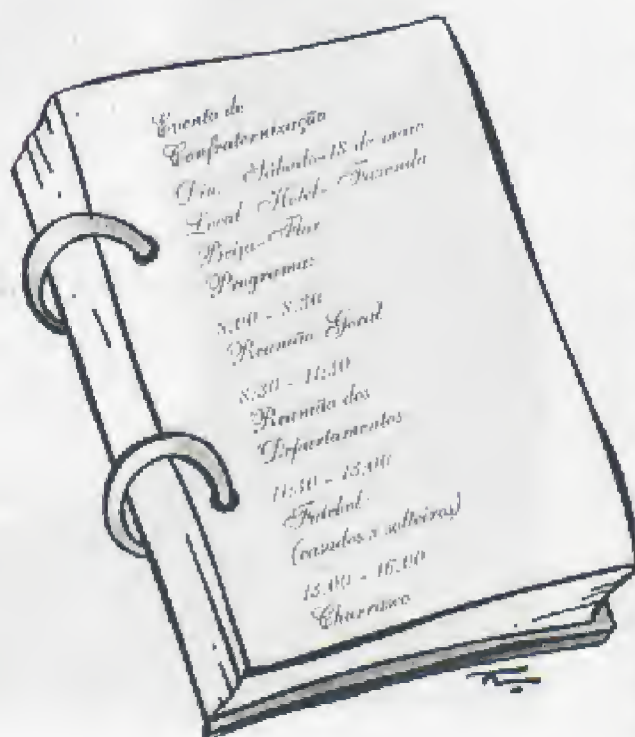 Evento de
Confraternização
Dia: Sábado-18 de maio
Local: Hotel- Fazenda
Beija-Flor
Programa:
8:00 - 8:30
Reunião Geral
8:30 - 11:30
Reunião dos
Departamentos
11:30 - 13:00
Futebol
(casados x solteiros)
13:00 - 16:00
Churrasco